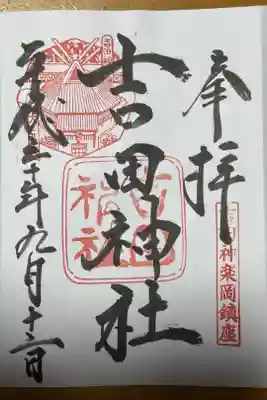 奉拝
吉田神楽岡鎮座
吉田神社
吉田
神社
平成三十年九月十二日